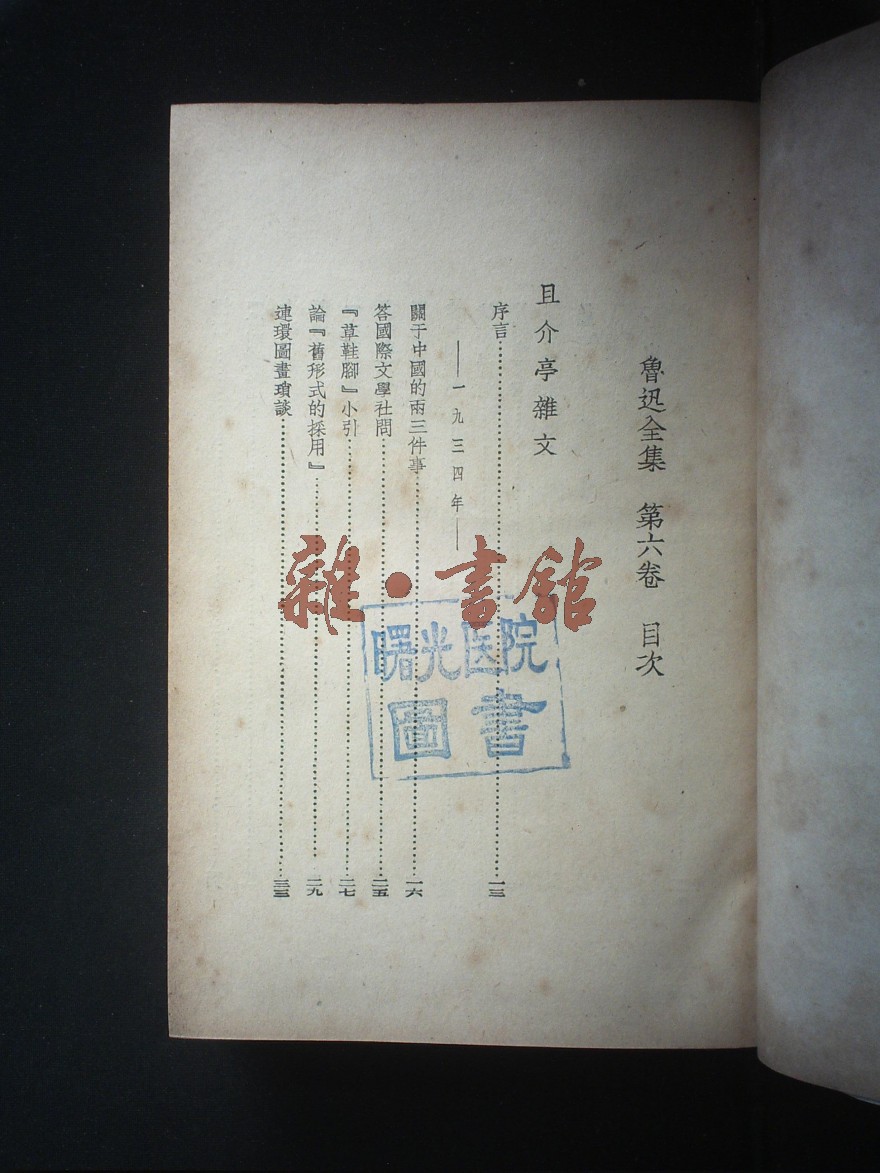 魯迅全集　第六卷　目次
且介亭雜文
序言……一三
——一九三四年——
關于中國的兩三件事……一六
答國際文學社問……二五
『草鞋腳』小引……二七
論『舊形式的採用』……二九
連環圖畫瑣談……三三
雜·書館
曙光医院
圖書